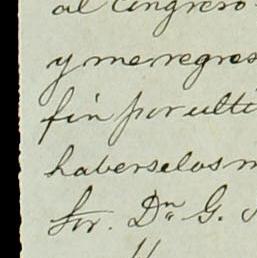 al Congreso
y me regres
fin por ulti
haberselos m
Sor. Dn. G.